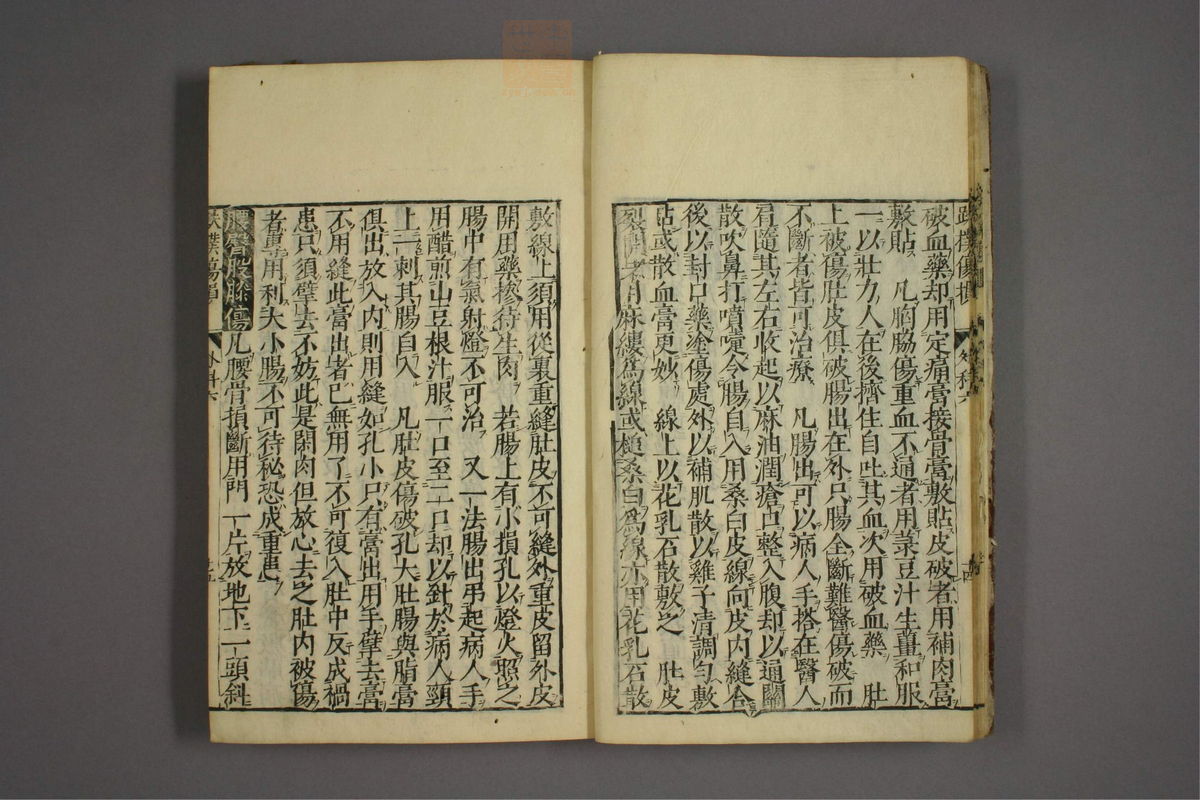 跌撲傷損
外科六
破血藥却用定痛膏接骨膏敷貼皮破者用補肉膏
敷貼 凡胸脇傷重血不通者用菉豆汁生薑和服
一以壯力人在後擠住自吐其血次用破血藥 肚
上被傷肚皮俱破腸出在外只腸全斷難醫傷破而
不斷者皆可治療 凡腸出可以病人手搭在醫人
肩隨其左右收起以麻油潤瘡口整入腹却以通關
散吹鼻打噴嚏令腸自入用桑白皮線向皮內縫合
後以封口藥塗傷處外以補肌散以雞子清調勻敷
貼或散血膏更妙 線上以花乳石散敷之 肚皮
裂開者用麻縷爲線或槌桑白爲線亦用花乳石散
敷線上須用從裏重縫肚皮不可縫外重皮留外皮
開用藥摻待生肉 若腸上有小損孔以燈火照之
腸中有氣射燈不可治 又一法腸出弔起病人手
用醋煎山豆根汁服一口至二口却以針於病人頸
上一刺其腸自入 凡肚皮傷破孔大肚腸與脂膏
俱出放入內則用縫如孔小只有膏出用手擘去膏
不用縫此膏出者已無用了不可復入肚中反成禍
患只須擘去不妨此是閑肉但放心去之肚內被傷
者專用利大小腸不可待秘恐成重患
腰臀股膝傷凡腰骨損斷用門一片放地下一頭斜
跌撲傷損
外科六